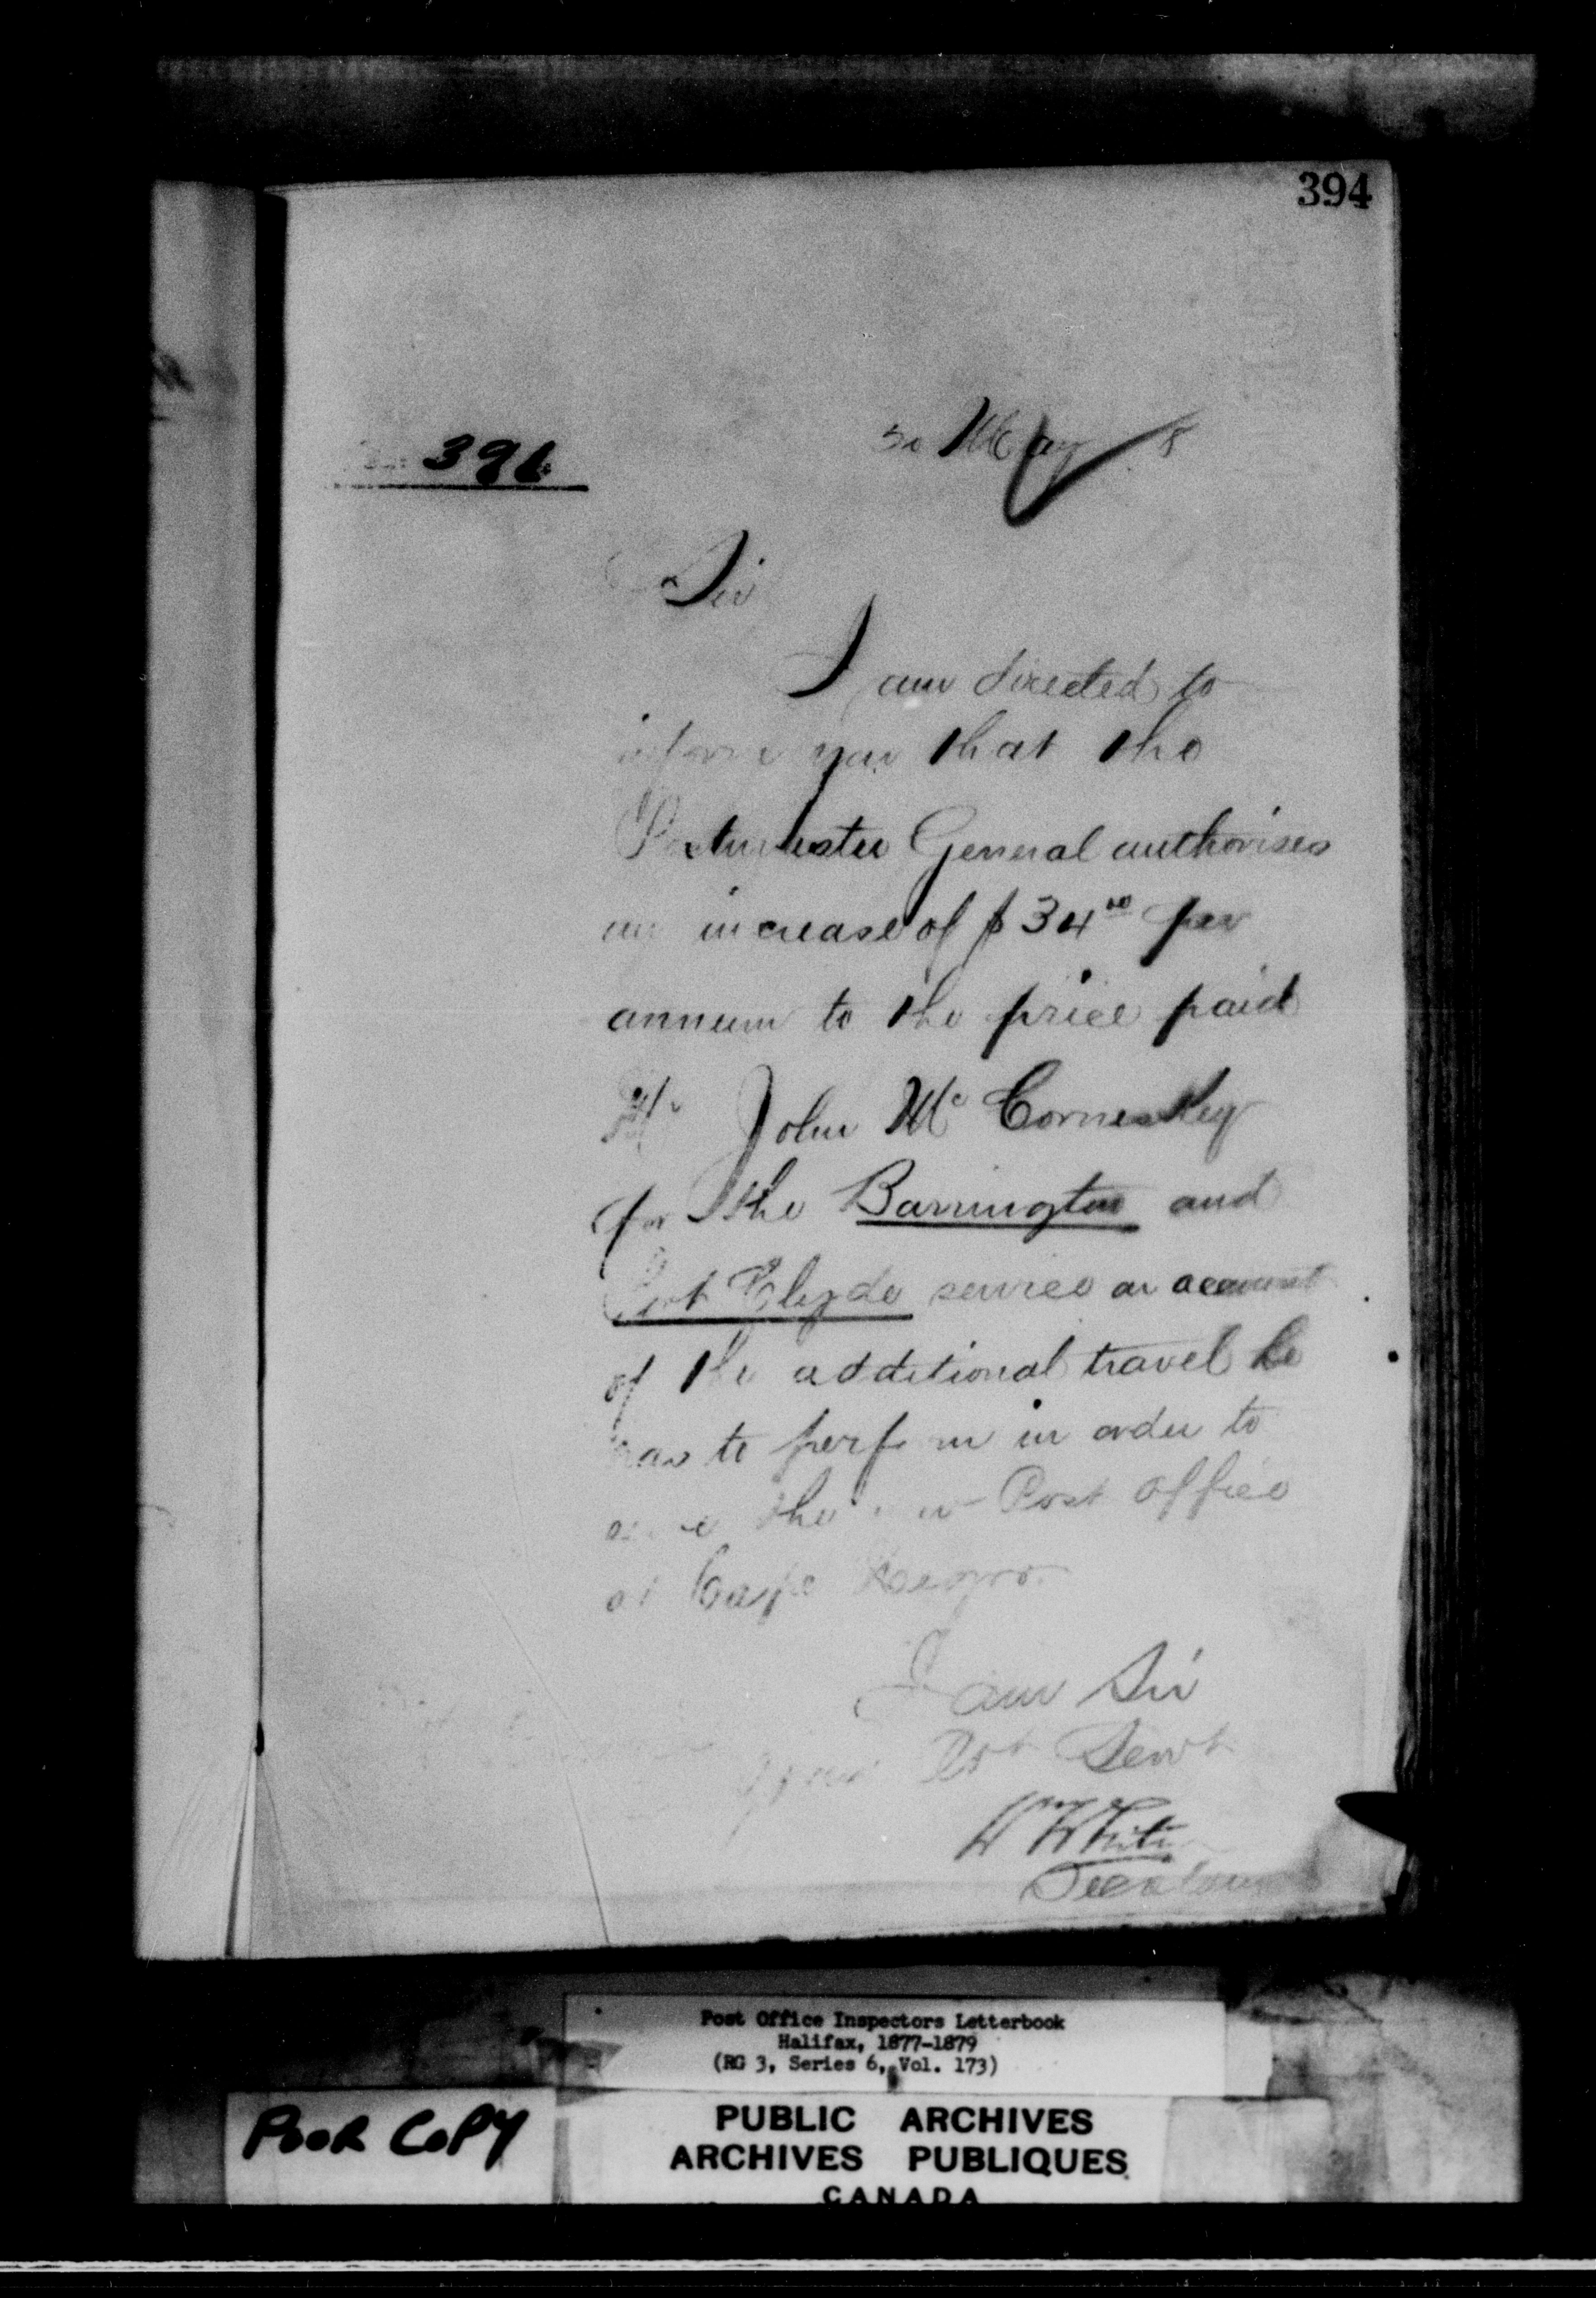 394
396
30 May 8
Sir
I am directed to
inform you that the
Postmaster General authorises
an increase of $34 00 per
annum to the price paid
Mr John Mc
for the Barrington and
Port Clyde service on account
of the additional travel he
has to perform in order to
serve the new Post Office
at Cape Negro.
I am Sir
your Obt Servt
W White
Secretary
Post Office Inspectors Letterbook
Halifax, 1877-1879
(RG 3, Series 6, Vol. 173)
POOR COPY
PUBLIC ARCHIVES
ARCHIVES PUBLIQUES
CANADA